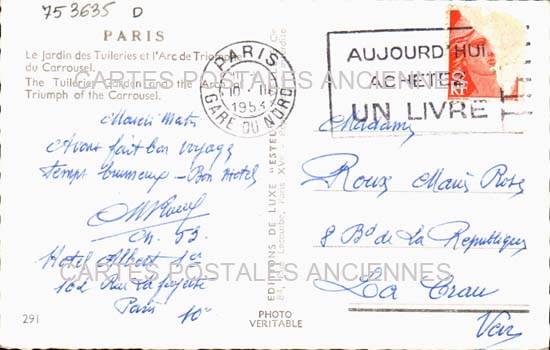 753635 D
PARIS
Le Jardin des Tuileries et l'Arc de Triomphe
du Carrousel.
The Tuileries Garden and the Arc
Triumph of the Carrousel.
CARTES POSTALES ANCIENNES
PARIS
1953
GARE DU NORD
AUJOURD'HUI
ACHETEZ
UN LIVRE
RF
Mardi Matin
Avons fait bon voyage
Temps brumeux - Bon Hotel
Ch. 53
Hotel Albert 1er
162 Rue Lafayette
Paris 10e
Madame
Roux Marie Rose
8 Bd de La Republique
CARTES POSTALES ANCIENNES
La Crau
Var
EDITIONS DE LUXE "ESTEL"
291
PHOTO
VERITABLE